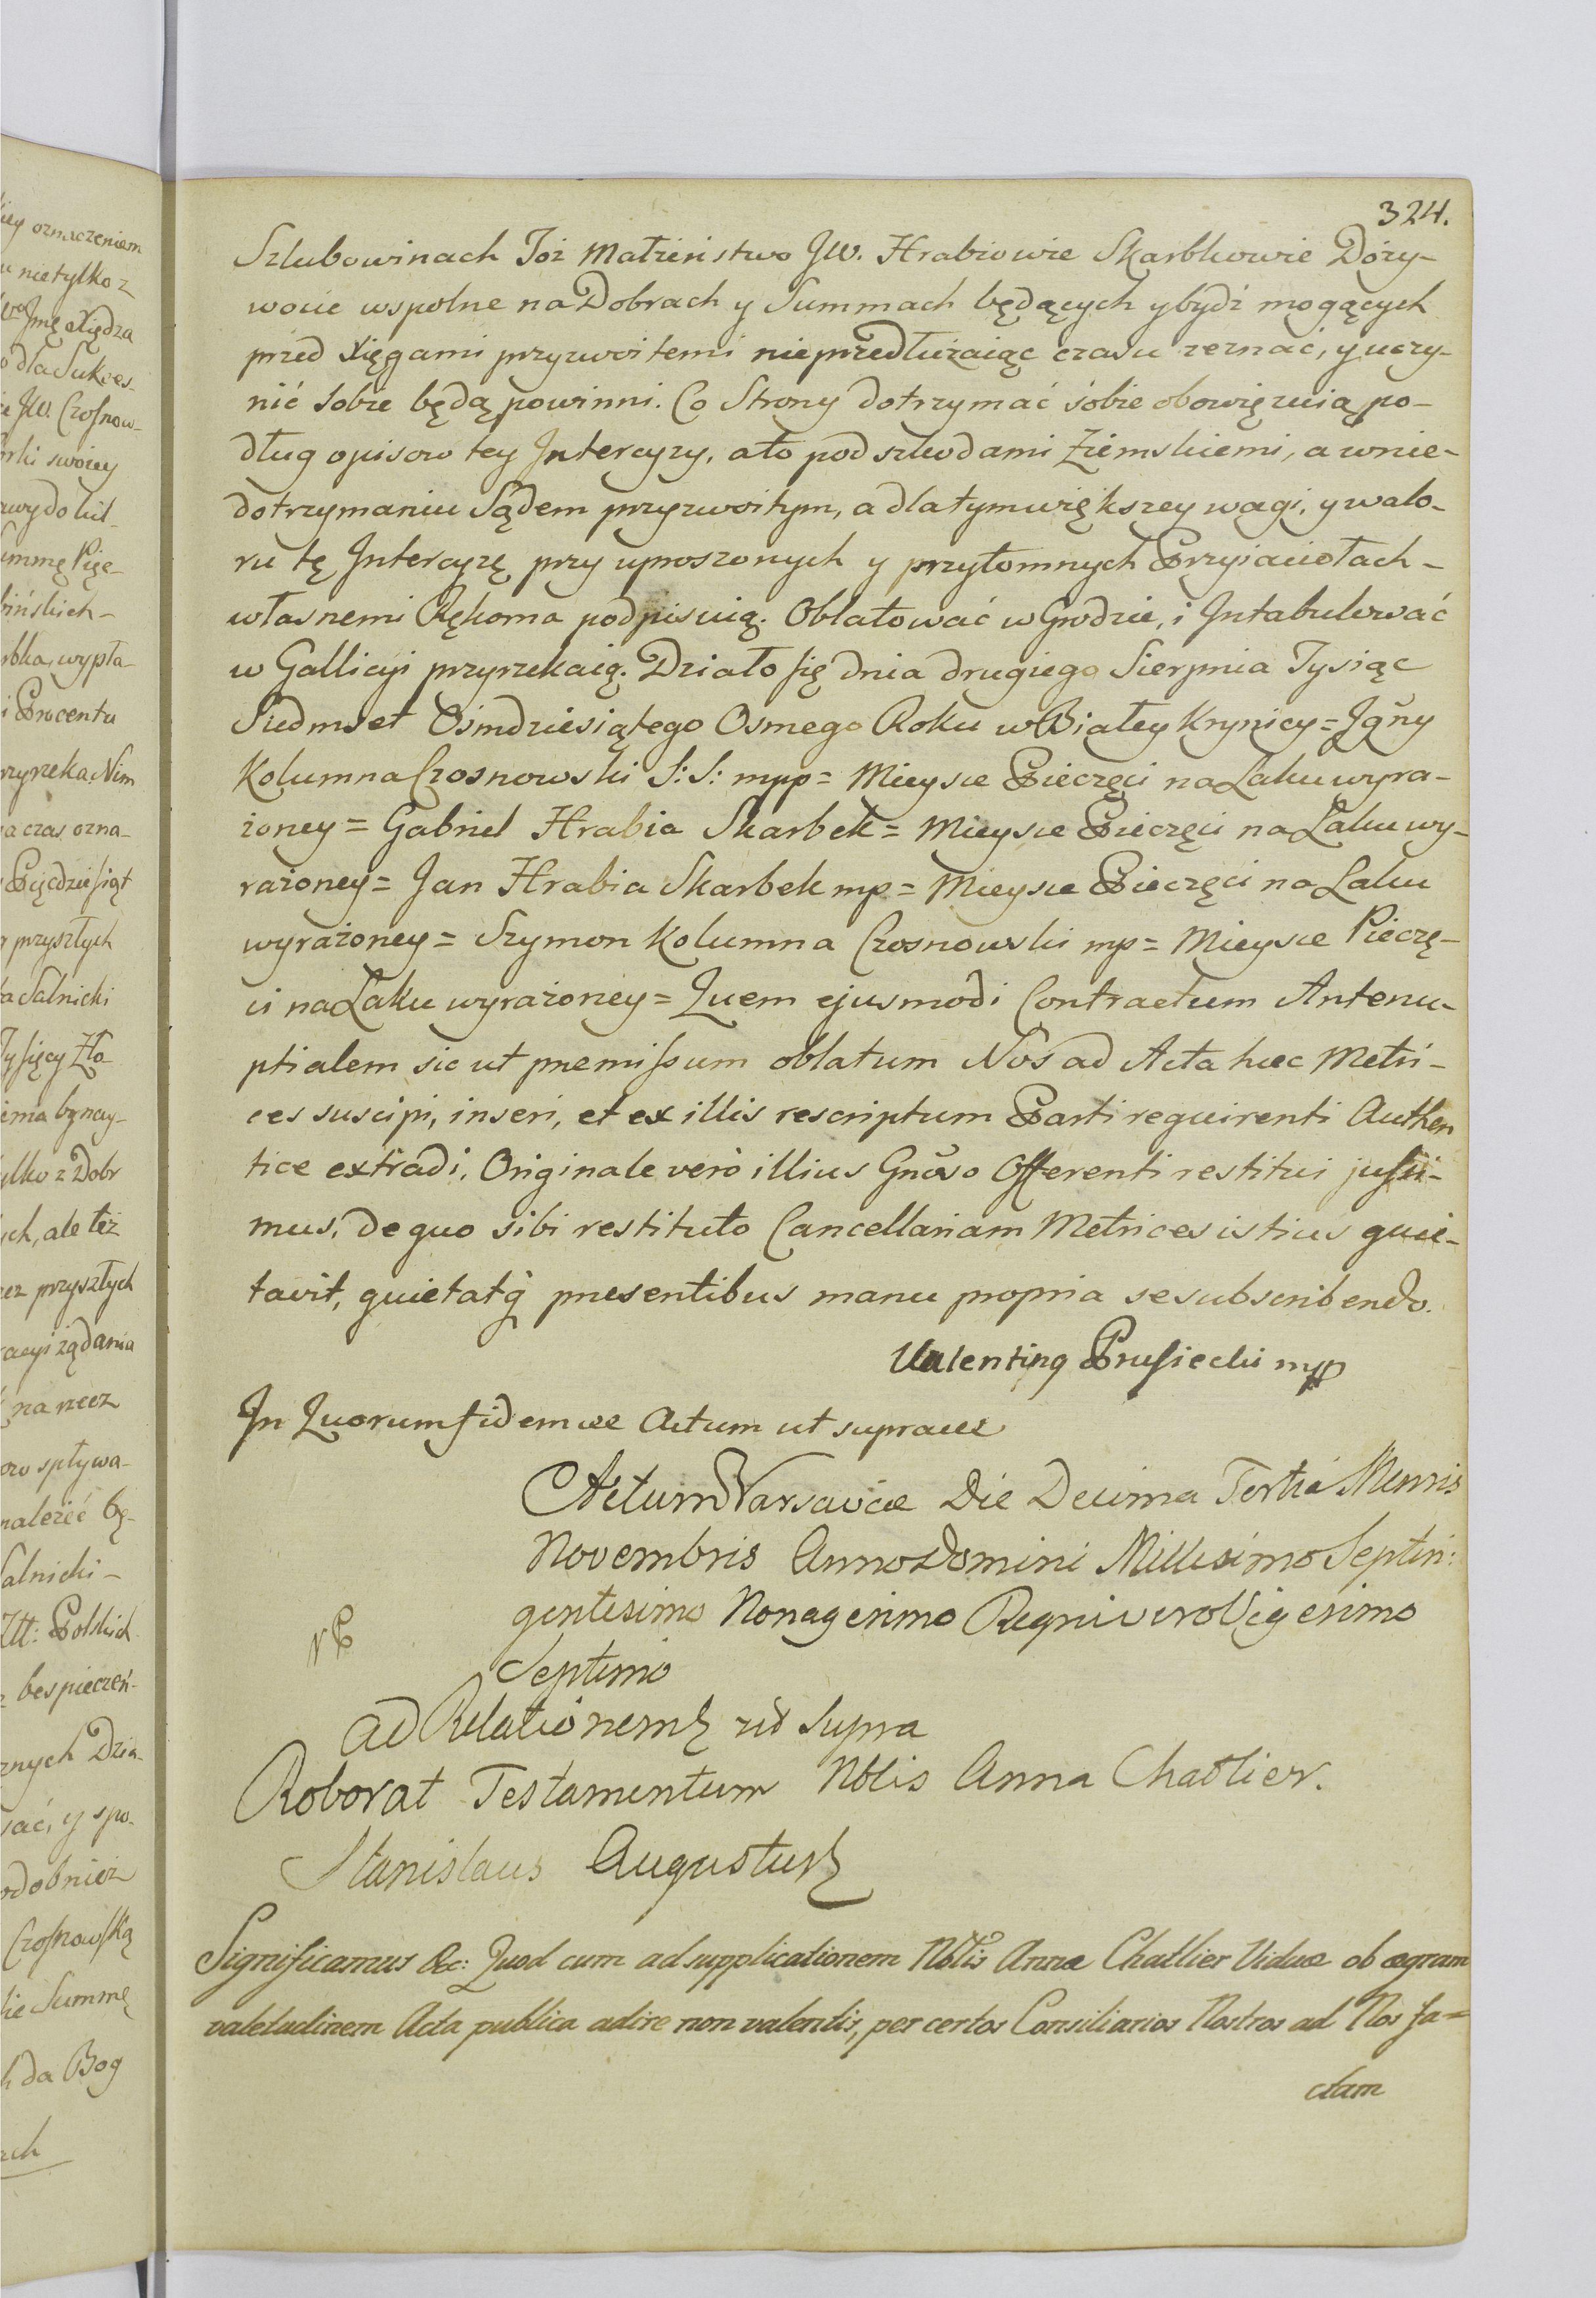 324.
Szlubowinach Toż Małżenstwo JW. Hrabiowie Skarbkowie Doży-
wocie wspolne na Dobrach y Summach będących y bydź mogących
przed Xięgami przyzwoitemi nieprzedłużaiąc czasu zeznać, y uczy-
nić sobie będą powinni. Co Strony dotrzymać sobie obowięzuią po-
dług opisow tey Intercyzy, a to pod szkodami Ziemskiemi, a w nie-
dotrzymaniu Sądem przyzwoitym, a dla tym większey wagi, y walo-
ru tę Intercyzę przy uproszonych y przytomnych Przyiaciołach -
własnemi Rękoma podpisuią. Oblatować w Grodzie, i Intabulować
w Gallicyi przyrzekaią. Działo się dnia drugiego Sierpnia Tysiąc
Siedmset Osimdziesiątego Osmego Roku w Białey Krynicy = Ig̃ny
Kolumna Czosnowski S: S: mpp = Mieysce Pieczęci na Laku wyra-
żoney = Gabriel Hrabia Skarbek = Mieysce Pieczęci na Laku wy-
rażoney = Jan Hrabia Skarbek mp = Mieysce Pieczęci na Laku
wyrażoney = Szymon Kolumna Czosnowski mp = Mieysce Pieczę-
ci na Laku wyrażoney = Quem ejusmodi Contractum Antenu-
ptialem sic ut premissum oblatum Nos ad Acta hæc Metri-
ces suscipi, inseri, et ex illis rescriptum Parti requirenti Authen
tice extradi. Originale verò illius Gnõso Offerenti restitui jussi-
mus, de quo sibi restituto Cancellariam Metrices istius quie-
tavit, quietatq́ presentibus manu propria se subscribendo.
Valentinq Prusiecki mpp
In Quorum fidem &c Actum ut supra &c
Actum Varsaviæ Die Decima Tertia Mensis
Novembris Anno Domini Millesimo Septin:
gentesimo Nonagesimo Regni vero Vigesimo
Septimo
Ad Relationem &c ut supra
Roborat Testamentum Nblis Anna Chatlier.
Stanislaus Augustus &c
Significamus &c: Quod cum ad supplicationem Nblis Annæ Chatlier Viduæ ob ægram
valetudinem Acta publica adire non valentis, per certos Consiliarios Nostros ad Nos fa=
ctam